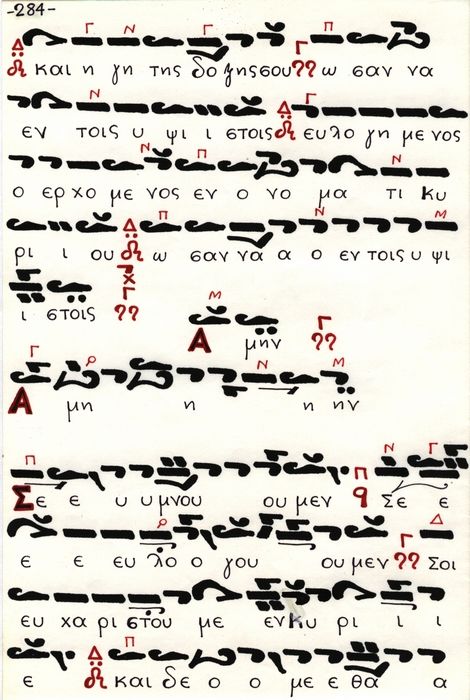 -284-
και η γη της δο ξης σου ω σαν να
εν τοις υ ψι ι στοις ευ λο γη με νος
ο ερ χο με νος εν ο νο μα τι κυ
ρι ι ου ω σαν να α ο εν τοις υ ψι
ι στοις
Α μην
Α μη η η ην
Σε ε υ υ μνου ου μεν Σε ε
ε ε ευ λο ο γου ου μεν Σοι
ευ χα ρι στου με εν κυ ρι ι ι
ε και δε ο ο με ε θα α